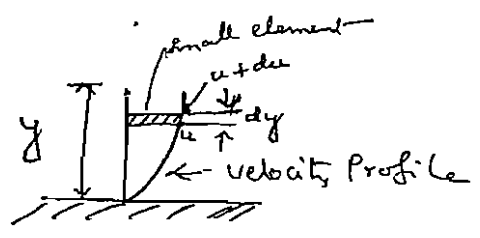 small element
u + du
y
dy
u
velocity Profile